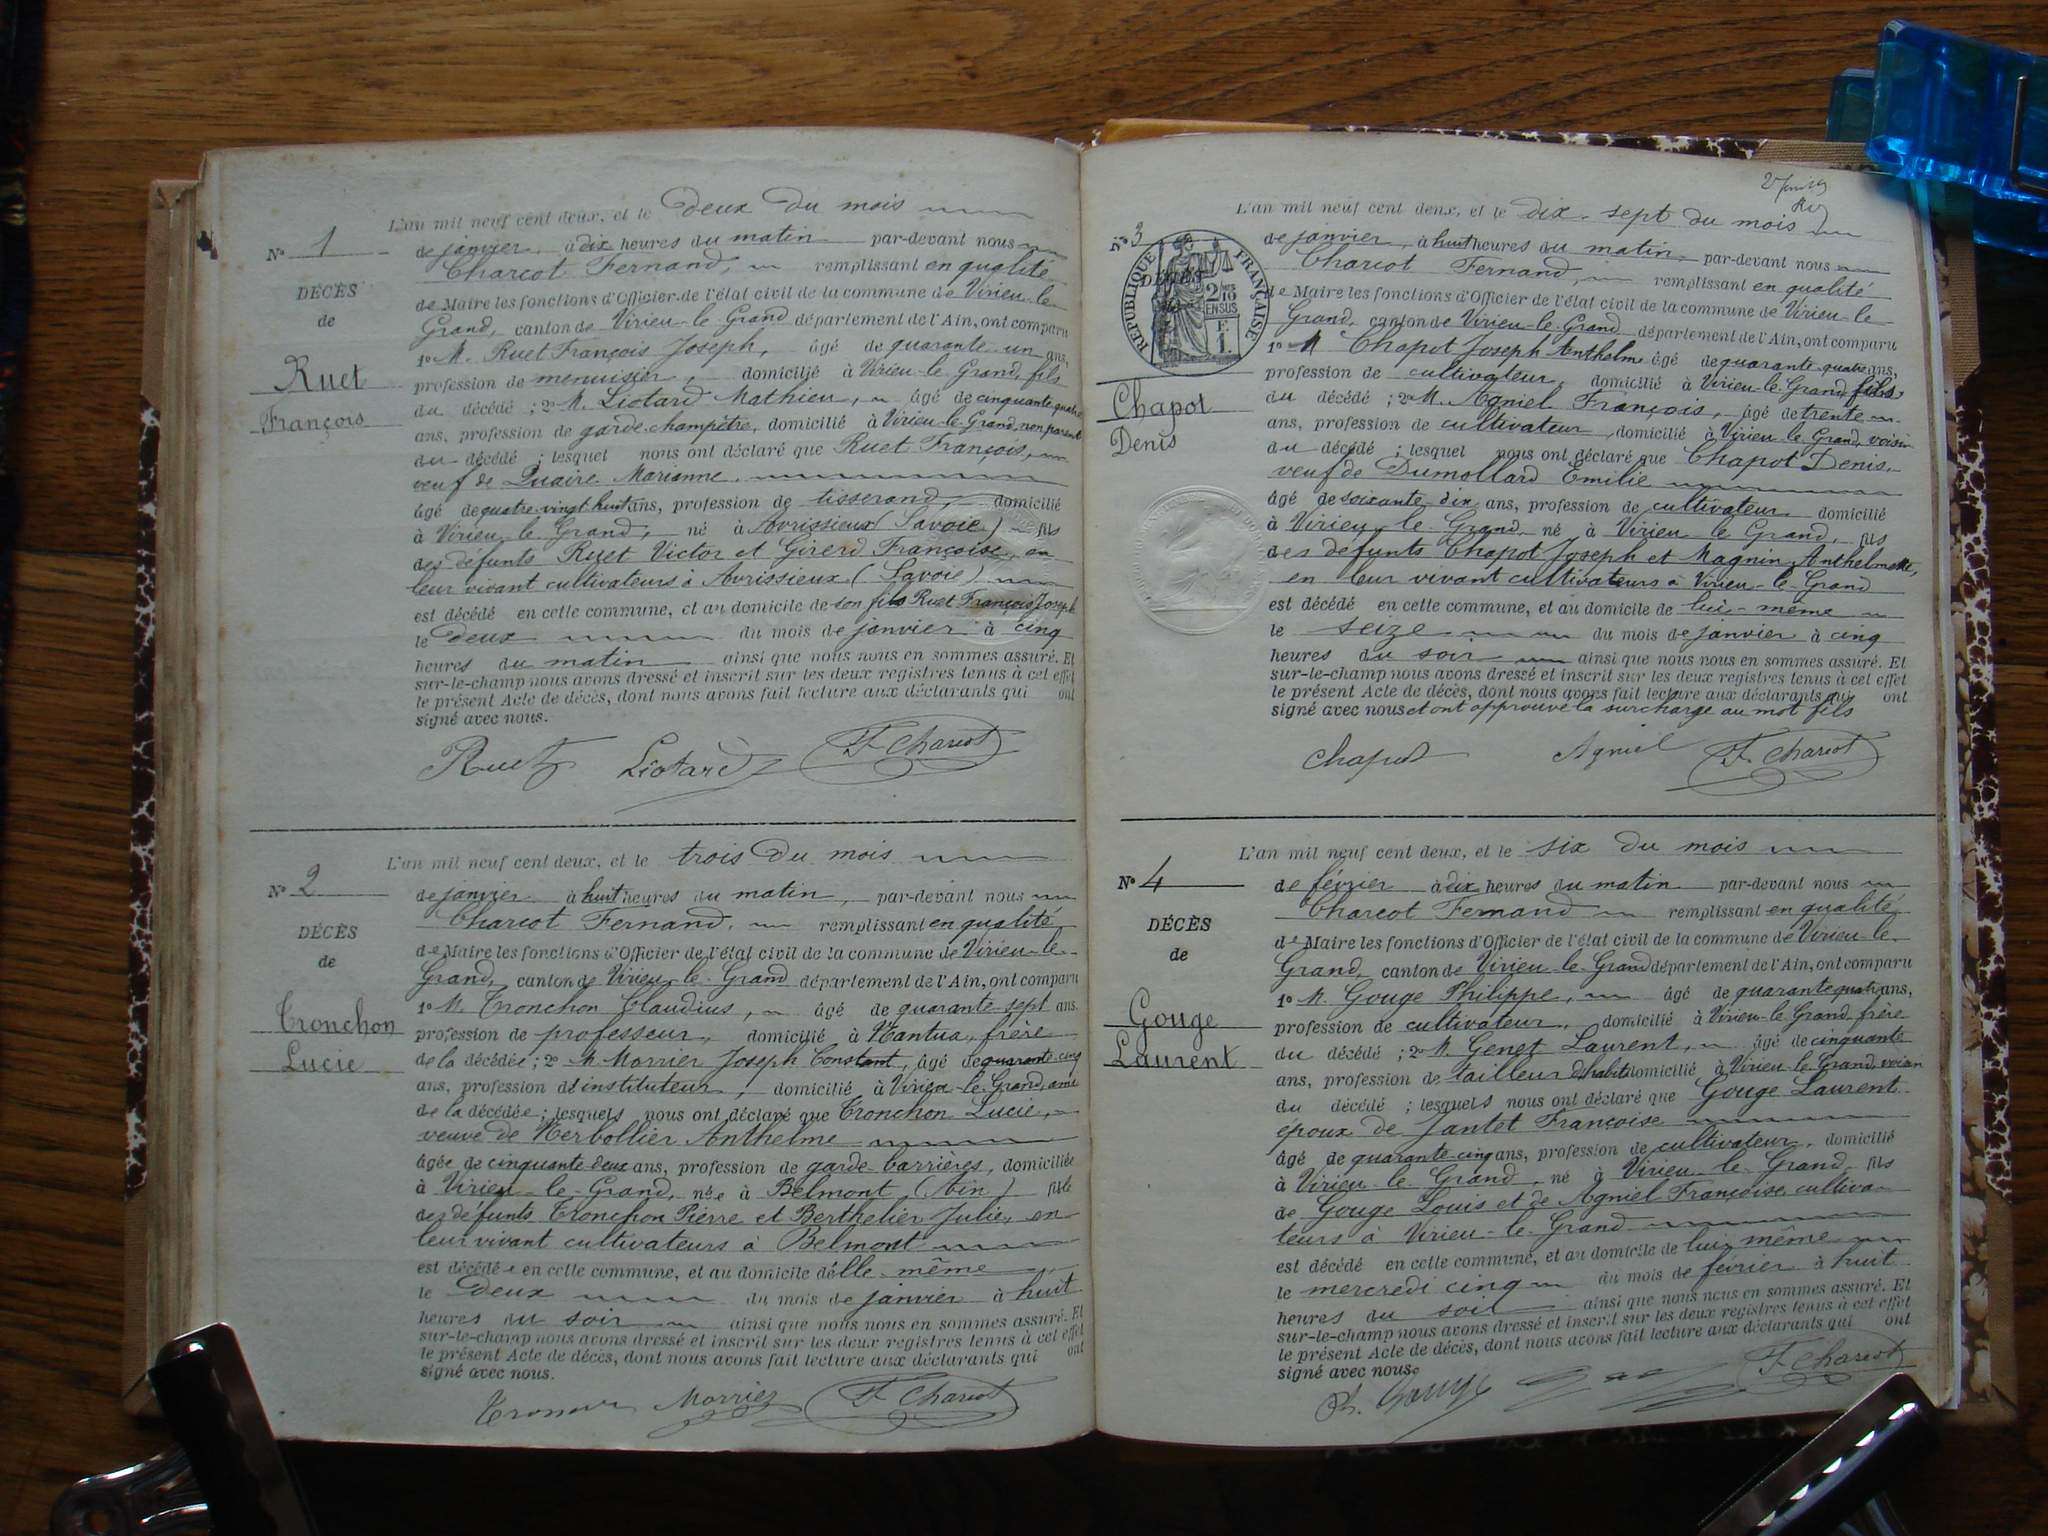 L'an mil neuf cent deux, et le deux du mois
N° 1
de janvier à dix heures du matin par-devant nous
Charcot Fernand, remplissant en qualité
DÉCÈS
de Maire les fonctions d'Officier de l'état civil de la commune de Virieu-le-
de
Grand, canton de Virieu-le-Grand département de l'Ain, ont comparu
1° M. Ruet François Joseph, âgé de quarante-un ans,
Ruet
profession de menuisier, domicilié à Virieu-le-Grand, fils
François
du décédé ; 2° M. Liotard Mathieu, âgé de cinquante quatre
ans, profession de garde-champêtre, domicilié à Virieu-le-Grand, non parent
du décédé ; lesquel nous ont déclaré que Ruet François,
veuf de Quaire Marianne
âgé de quatre-vingt huit ans, profession de tisserand, domicilié
à Virieu-le-Grand, né à Avrissieux (Savoie) fils
des défunts Ruet Victor et Girerd Françoise, en
leur vivant cultivateurs à Avrissieux (Savoie)
est décédé en cette commune, et au domicile de son fils Ruet François Joseph
le deux du mois de janvier à cinq
heures du matin ainsi que nous nous en sommes assuré. Et
sur-le-champ nous avons dressé et inscrit sur les deux registres tenus à cet effet
le présent Acte de décès, dont nous avons fait lecture aux déclarants qui ont
signé avec nous.
Ruet Liotard F. Charcot
L'an mil neuf cent deux, et le trois du mois
N° 2
de janvier à huit heures du matin, par-devant nous
Charcot Fernand, remplissant en qualité
DÉCÈS
de Maire les fonctions d'Officier de l'état civil de la commune de Virieu-le-
de
Grand, canton de Virieu-le-Grand département de l'Ain, ont comparu
1° M. Tronchon Claudius, âgé de quarante-sept ans
Tronchon
profession de professeur, domicilié à Nantua, frère
Lucie
de la décédée ; 2° M. Morrier Joseph Constant, âgé de quarante-cinq
ans, profession d'instituteur, domicilié à Virieu-le-Grand, ami
de la décédée ; lesquels nous ont déclaré que Tronchon Lucie,
veuve de Nerbollier Anthelme
âgée de cinquante deux ans, profession de garde-barrières, domiciliée
à Virieu-le-Grand, née à Belmont (Ain) fille
des défunts Tronchon Pierre et Berthelier Julie, en
leur vivant cultivateurs à Belmont
est décédée en cette commune, et au domicile d'elle-même
le deux du mois de janvier à huit
heures du soir ainsi que nous nous en sommes assuré. Et
sur-le-champ nous avons dressé et inscrit sur les deux registres tenus à cet effet
le présent Acte de décès, dont nous avons fait lecture aux déclarants qui ont
signé avec nous.
Tronchon Morrier F. Charcot
L'an mil neuf cent deux, et le dix-sept du mois
N° 3
de janvier, à huit heures du matin, par-devant nous
Charcot Fernand, remplissant en qualité
RÉPUBLIQUE FRANÇAISE
DÉCÈS
2/10 EN SUS
F. 1
de Maire les fonctions d'Officier de l'état civil de la commune de Virieu-le-
Grand, canton de Virieu-le-Grand département de l'Ain, ont comparu
1° M Chapot Joseph Anthelme âgé de quarante quatre ans,
profession de cultivateur, domicilié à Virieu-le-Grand, fils
Chapot
du décédé ; 2° M. Agniel François, âgé de trente
Denis
ans, profession de cultivateur, domicilié à Virieu-le-Grand, voisin
du décédé ; lesquel nous ont déclaré que Chapot Denis,
veuf de Dumollard Emilie
âgé de soixante-dix ans, profession de cultivateur domicilié
à Virieu-le-Grand né à Virieu le Grand, fils
des défunts Chapot Joseph et Magnin Anthelmette,
en leur vivant cultivateurs à Virieu-le-Grand
est décédé en cette commune, et au domicile de lui-même
le seize du mois de janvier à cinq
heures du soir ainsi que nous nous en sommes assuré. Et
sur-le-champ nous avons dressé et inscrit sur les deux registres tenus à cet effet
le présent Acte de décès, dont nous avons fait lecture aux déclarants qui ont
signé avec nous et ont approuvé la surcharge au mot fils
Chapot Agniel F. Charcot
L'an mil neuf cent deux, et le six du mois
N° 4
de février à dix heures du matin par-devant nous
Charcot Fernand remplissant en qualité
DÉCÈS
de Maire les fonctions d'Officier de l'état civil de la commune de Virieu-le-
de
Grand, canton de Virieu-le-Grand département de l'Ain, ont comparu
1° M. Gouge Philippe, âgé de quarante quatre ans,
Gouge
profession de cultivateur, domicilié à Virieu-le-Grand frère
Laurent
du décédé ; 2° M. Genet Laurent, âgé de cinquante
ans, profession de tailleur d'habits domicilié à Virieu-le-Grand, voisin
du décédé ; lesquels nous ont déclaré que Gouge Laurent
époux de Jantet Françoise
âgé de quarante-cinq ans, profession de cultivateur, domicilié
à Virieu-le-Grand, né à Virieu-le-Grand fils
de Gouge Louis et de Agniel Françoise, cultiva-
teurs à Virieu-le-Grand
est décédé en cette commune, et au domicile de lui-même
le mercredi cinq du mois de février à huit
heures du soir ainsi que nous nous en sommes assuré. Et
sur-le-champ nous avons dressé et inscrit sur les deux registres tenus à cet effet
le présent Acte de décès, dont nous avons fait lecture aux déclarants qui ont
signé avec nous.
Ph. Gouge F. Charcot